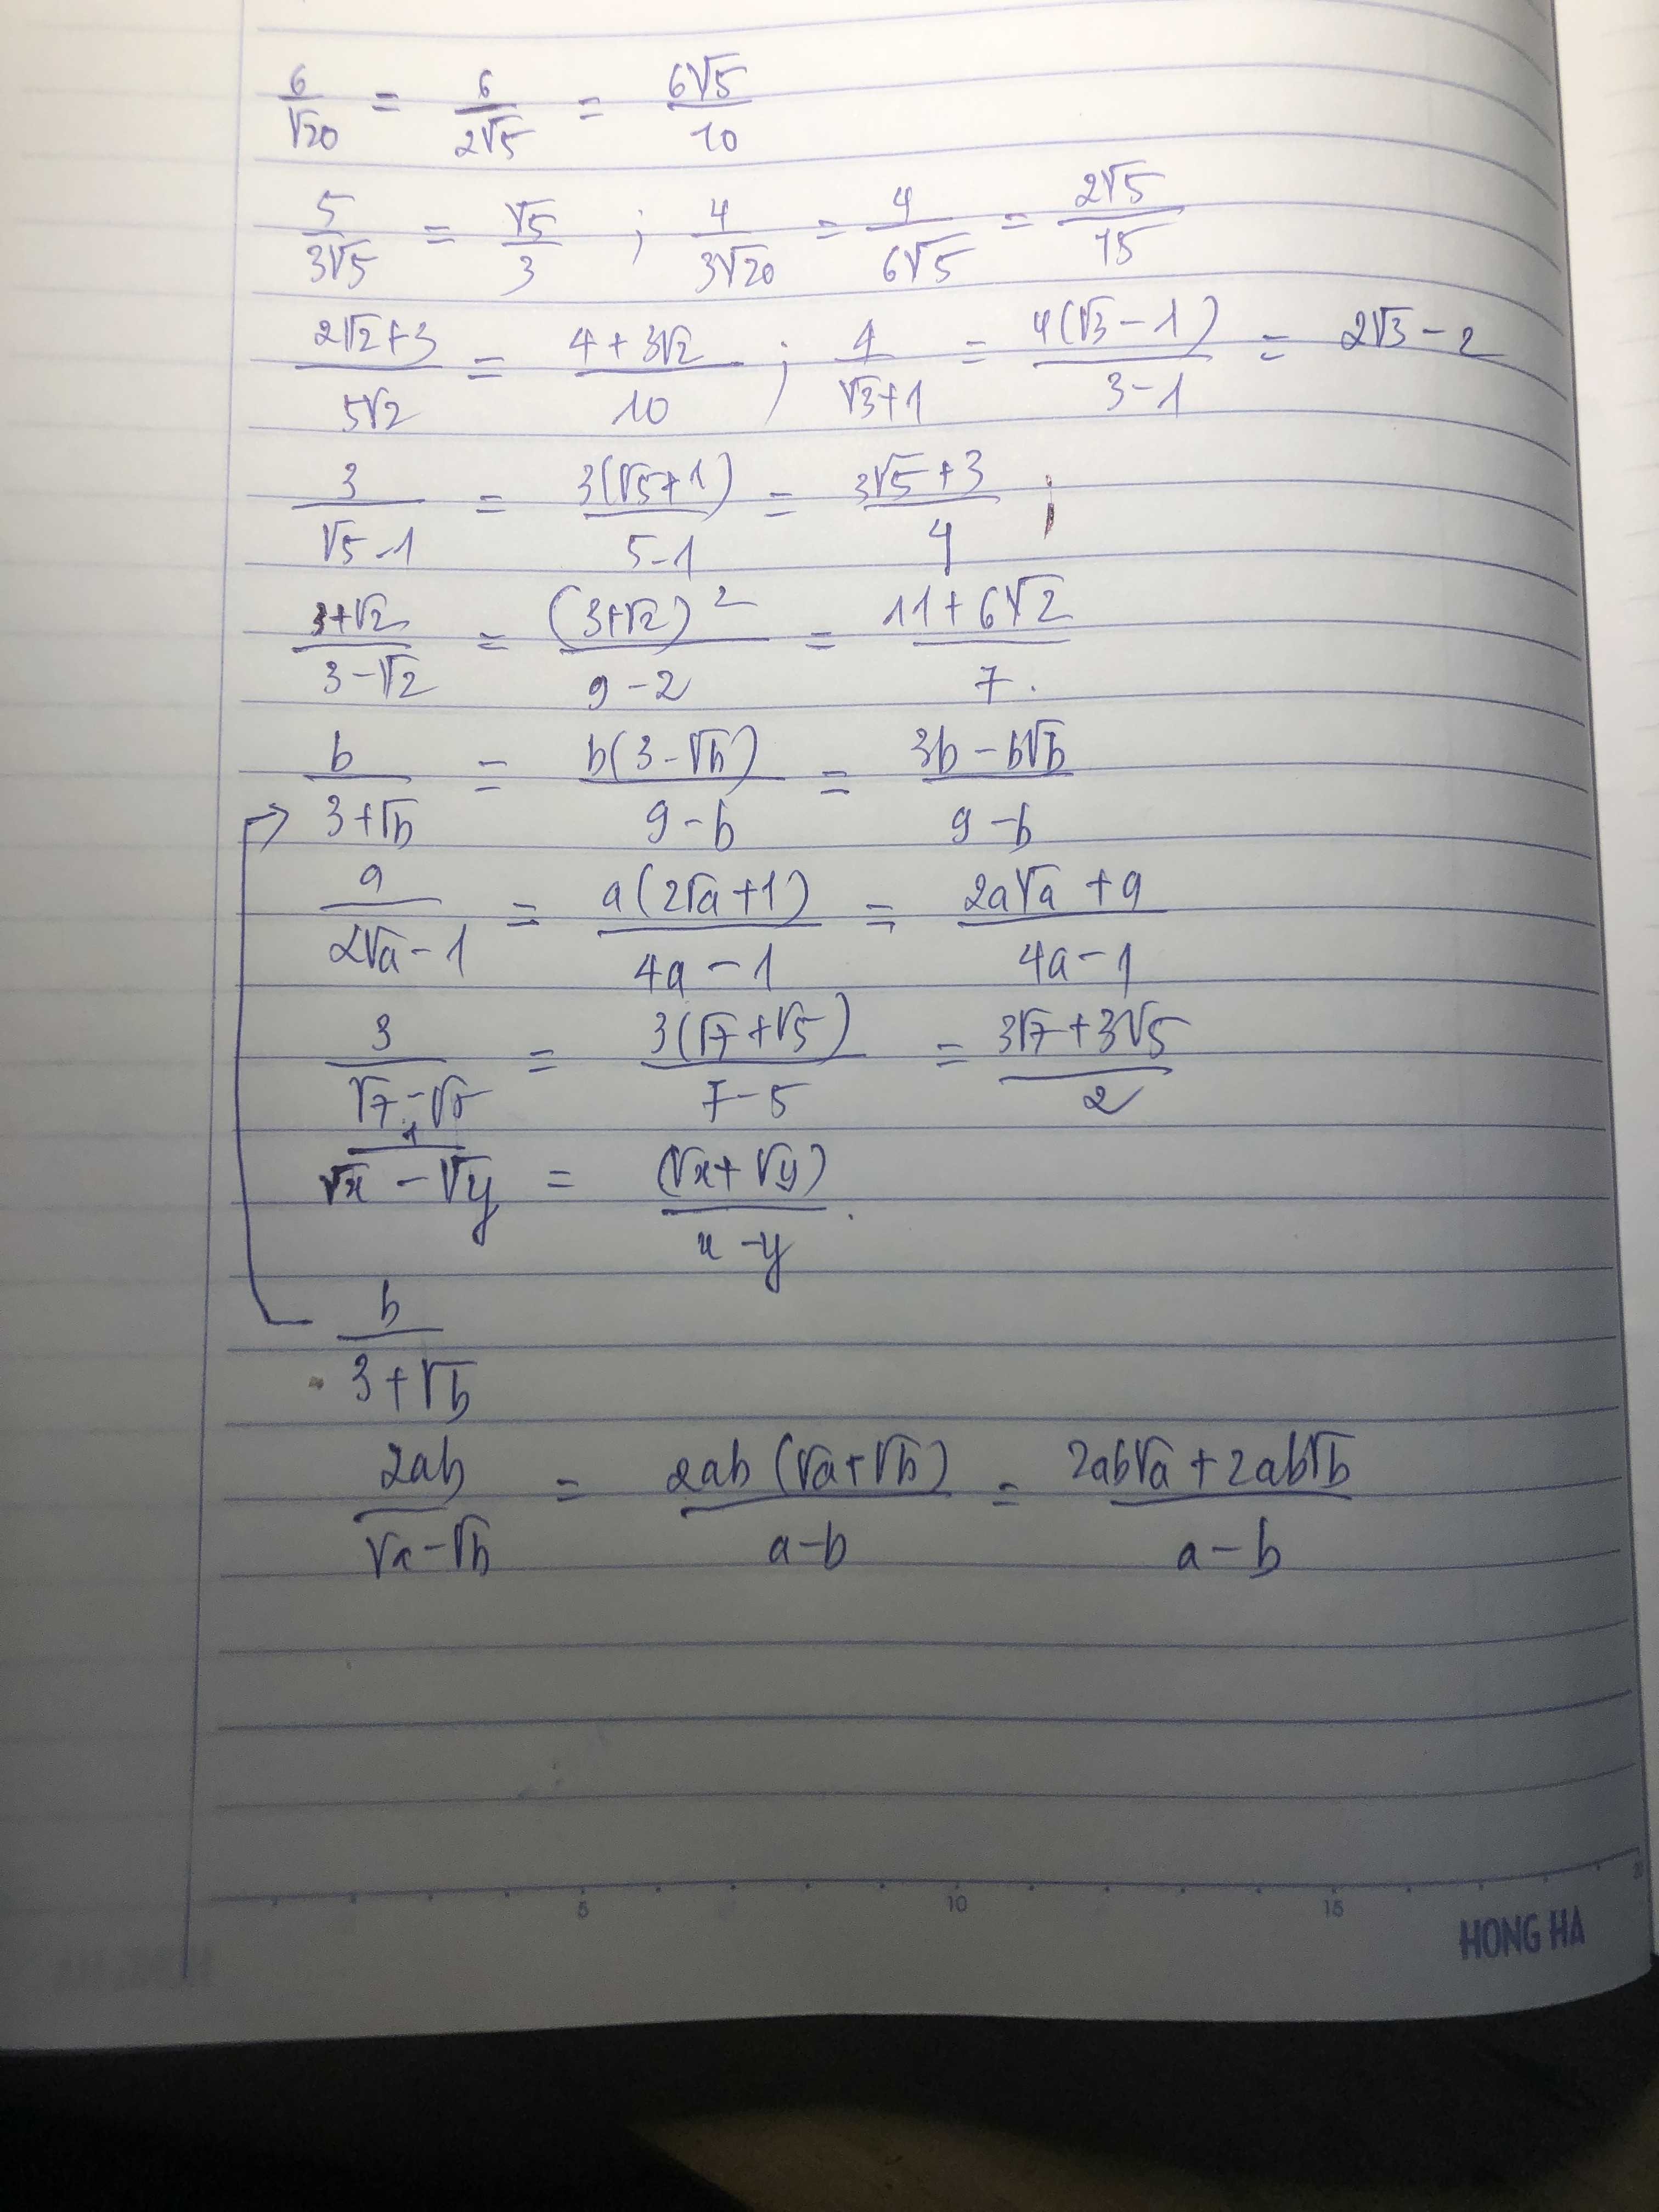 6/√20 = 6/2√5 = 6√5/10
5/3√5 = √5/3 ; 4/3√20 = 4/6√5 = 2√5/15
(2√2+3)/5√2 = (4+3√2)/10 ; 4/(√3+1) = 4(√3-1)/(3-1) = 2√3-2
3/(√5-1) = 3(√5+1)/(5-1) = (3√5+3)/4 ;
(3+√2)/(3-√2) = (3+√2)²/(9-2) = (11+6√2)/7.
b/(3+√b) = b(3-√b)/(9-b) = (3b-b√b)/(9-b)
a/(2√a-1) = a(2√a+1)/(4a-1) = (2a√a+a)/(4a-1)
3/(√7-√5) = 3(√7+√5)/(7-5) = (3√7+3√5)/2
1/(√x-√y) = (√x+√y)/(x-y).
b/(3+√b)
2ab/(√a-√b) = 2ab(√a+√b)/(a-b) = (2ab√a+2ab√b)/(a-b)
5 10 15 20
HONG HA